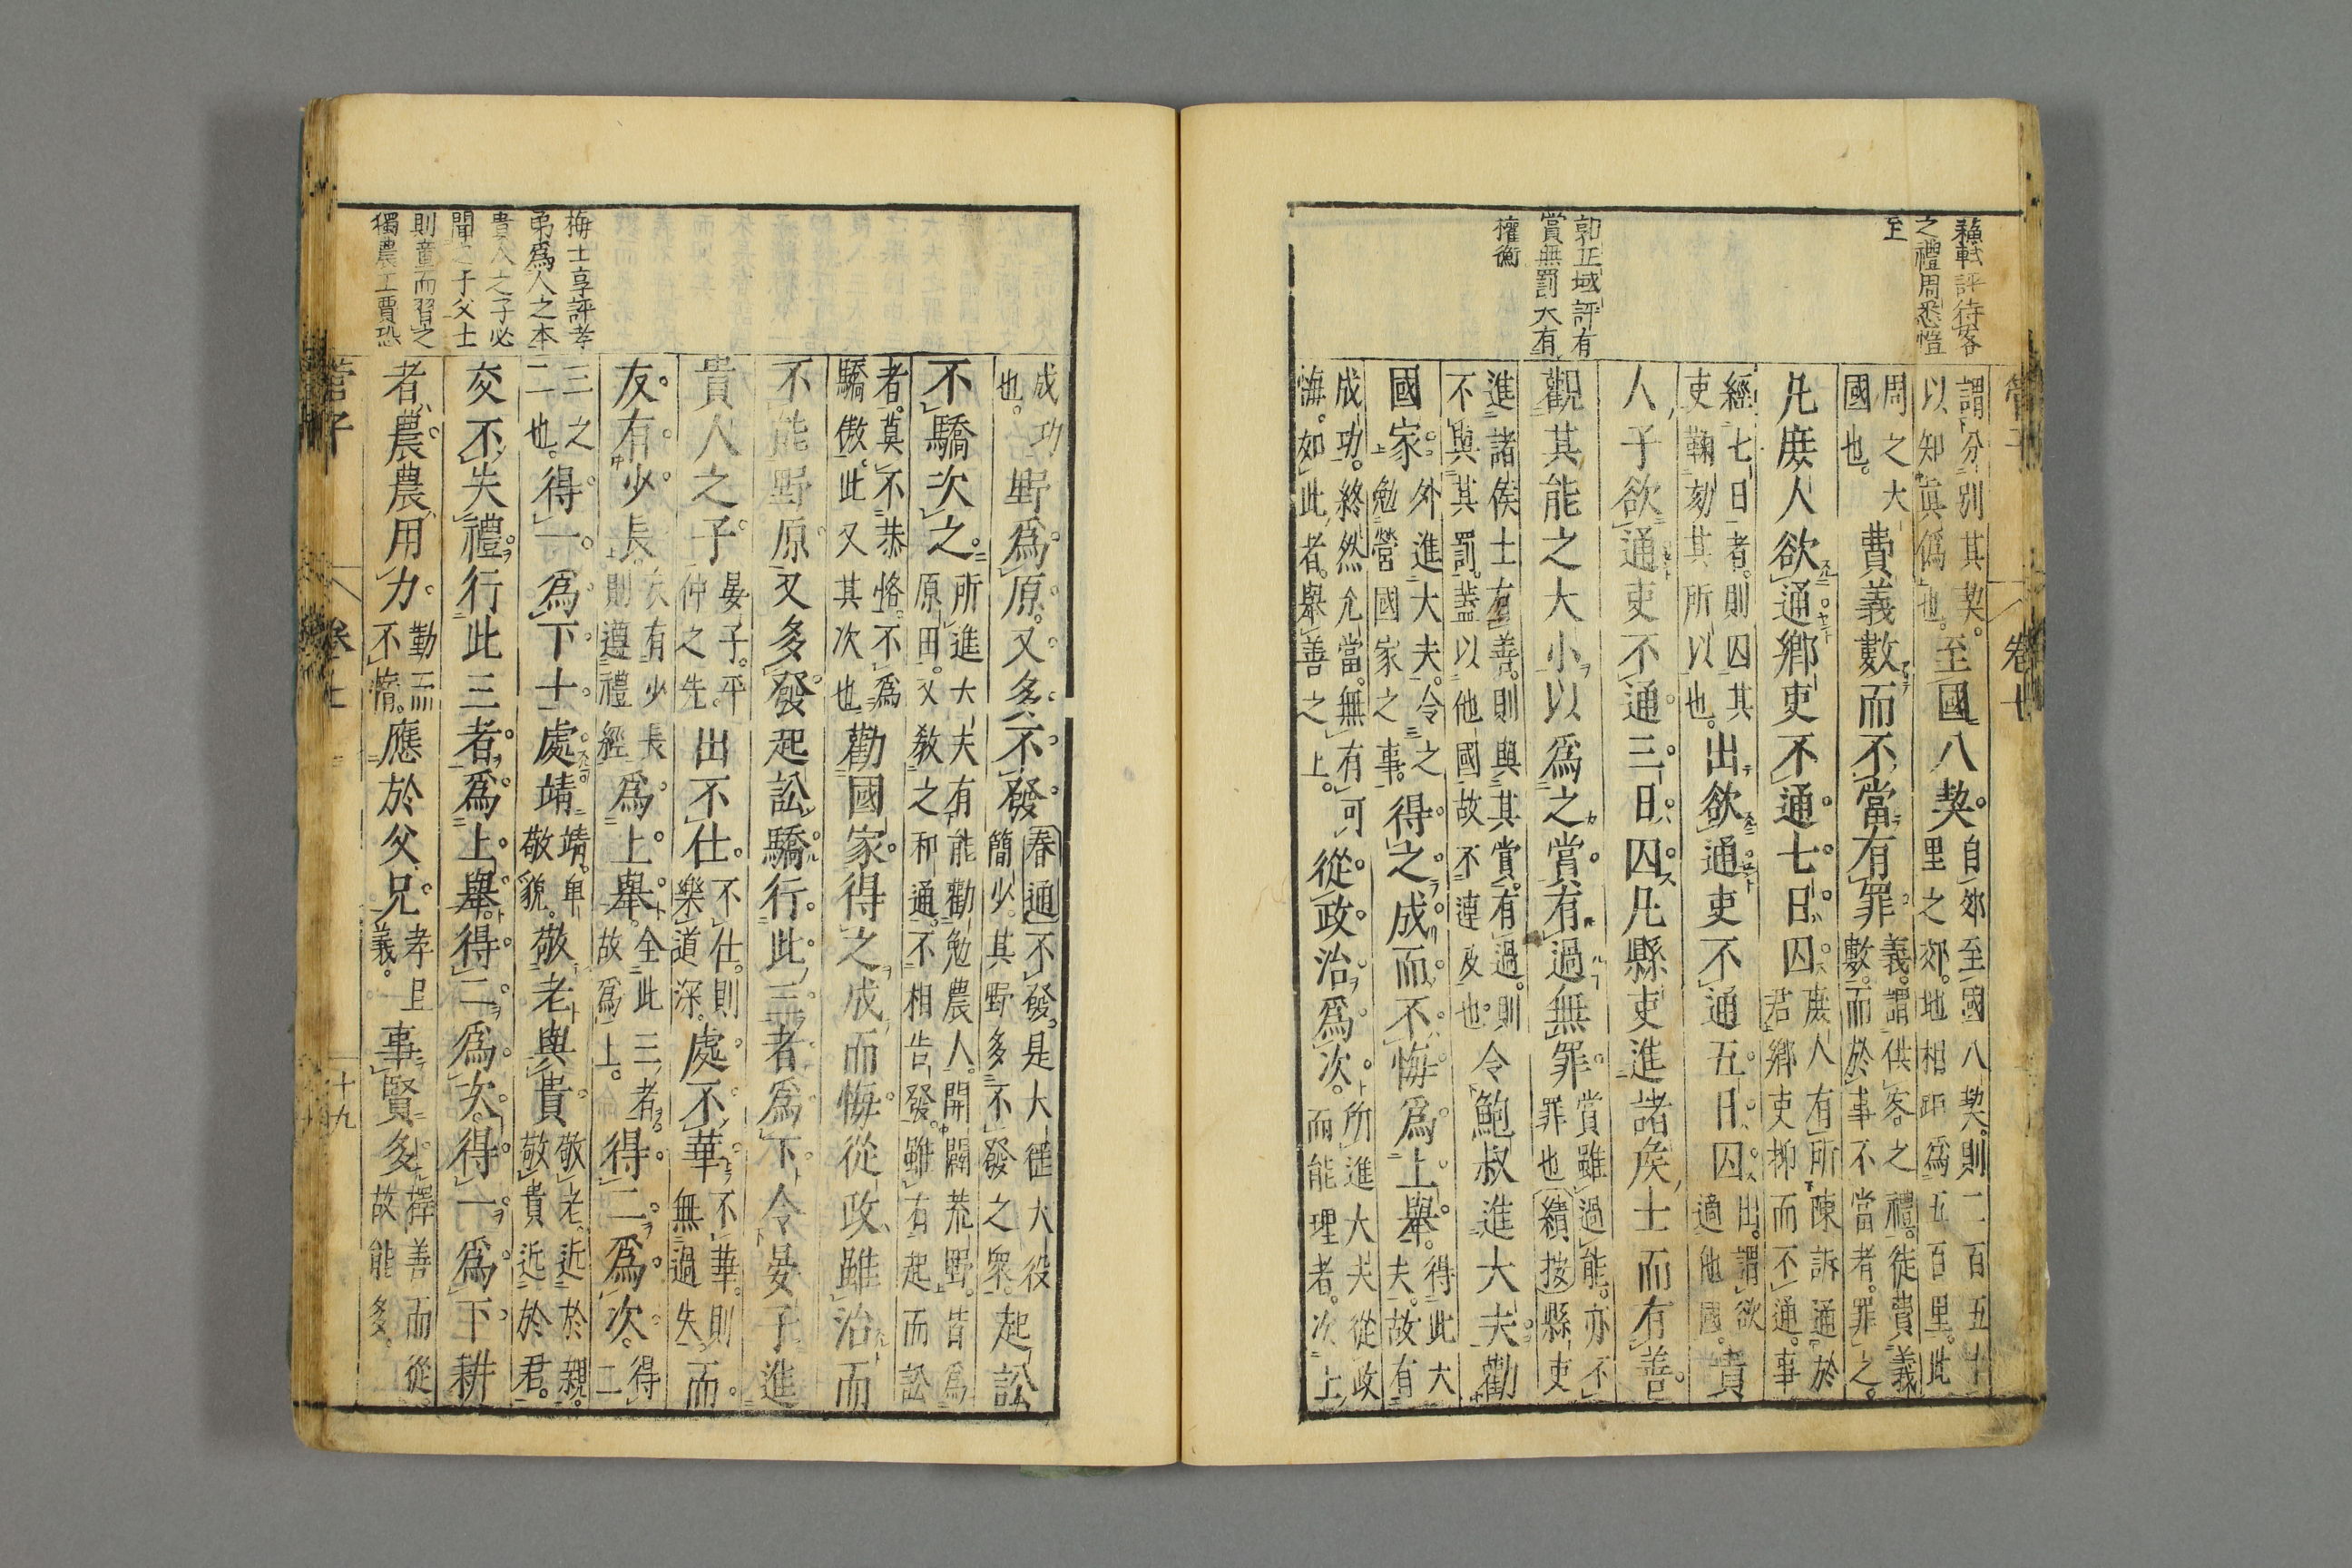 管子
卷七
蘇軾評待客
之禮周悉愷
至
郭正域評有
賞無罰大有
權衡
謂分別其契。以知眞僞也。至國八契。自郊至國八契。則二百五十里之郊。地相距爲五百里。此
周之大國也。費義數而不當有罪。義。謂供客之禮。徒費義數。而於事不當者。罪之。
凡庻人欲通鄉吏不通七日囚庻人有所陳訴通於君。鄉吏抑而不通。事
經七日者。則囚其吏鞠劾其所以也。出欲通吏不通五日囚出。謂欲適他國。貴
人子欲通吏不通三日囚凡縣吏進諸矦士而有善
觀其能之大小以爲之賞有過無罪賞雖過能。亦不罪也績按縣吏
進諸矦士有善。則與其賞。有過。則不與其罰。蓋以他國故不連及也。令鮑叔進大夫勸
國家外進大夫。令之勉營國家之事。得之成而不悔爲上舉。得此大夫。故有
成功。終然允當。無有悔。如此者。舉善之上。可從政治爲次。所進大夫從政而能理者。次上
成功也。野爲原。又多不發春通不發。是大徒大役簡少。其野多不發之衆。起訟
不驕次之。所進大夫有能勸勉農人。開闢荒野。皆爲原田。又敎之和通。不相告發。雖有起而訟
者。莫不恭恪。不爲驕傲。此又其次也勸國家得之成而悔從政雖治而
不能野原又多發起訟驕行此三者爲下令晏子進
貴人之子晏子。平仲之先出不仕。不仕。則樂道深。處不華不華。則無過失而
友有少長友有少長則遵禮經爲上舉。全此三者故爲上。得二爲次。得二
三之二也。得一爲下士處靖靖。卑敬貌。敬老與貴敬老。近於親。敬貴近於君。
交不失禮。行此三者爲上舉。得二爲次。得一爲下耕
者農農用力。勤而不惰。應於父兄。孝且義。事賢多擇善而從故能多。
梅士享評孝
弟爲人之本
貴人之子必
聞之于父士
則童而習之
獨農工賈恐
管子
卷七
十九